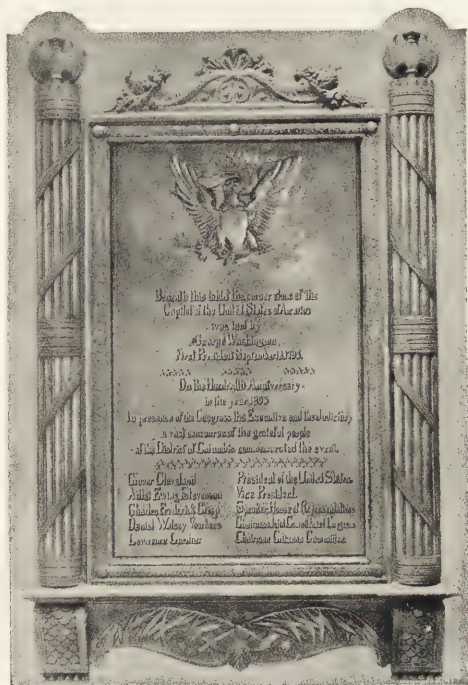 Beneath this tablet the corner stone of the
Capitol of the United States of America
was laid by
George Washington
First President September 18, 1793.
On the Hundredth Anniversary
in the year 1893
In presence of the Congress the Executive and the Judiciary
a vast concourse of the grateful people
of the District of Columbia commemorated the event.
Grover Cleveland President of the United States
Adlai Ewing Stevenson Vice President
Charles Frederick Crisp Speaker, House of Representatives
Daniel Wolsey Voorhees Chairman Joint Committee of Congress
Lawrence Gardner Chairman Citizens Committee